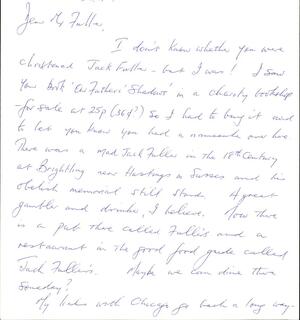 Dear Mr Fuller,
I don't know whether you were
christened Jack Fuller - but I was! I saw
your book 'Our Fathers' Shadows' in a charity bookshop
- for sale at 25p (36¢?) so I had to buy it and
to let you know you had a namesake over here.
There was a mad Jack Fuller in the 18th Century
at Brightling near Hastings in Sussex and his
obelisk memorial still stands. A great
gambler and drinker, I believe. Now there
is a pub there called Fullers and a
restaurant in the good food guide called
Jack Fuller's. Maybe we can dine there
someday?
My links with Chicago go back a long way -